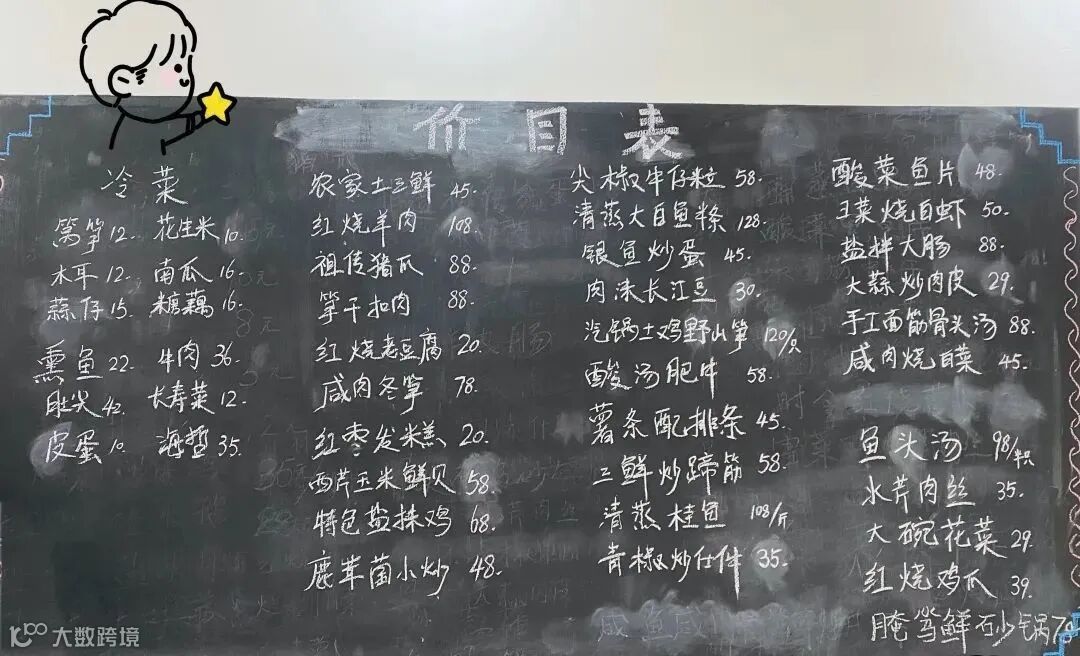 价目表
冷菜
莴笋12. 花生米10.
木耳12. 南瓜16.
蒜仔15. 糖藕16.
熏鱼22. 牛肉36.
肚尖42. 长寿菜12.
皮蛋10. 海蜇35.
农家土三鲜 45.
红烧羊肉 108.
祖传猪爪 88.
笋干扣肉 88.
红烧老豆腐 20.
咸肉冬笋 78.
红枣发糕 20.
西芹玉米鲜贝 58.
特色盐抹鸡 68.
鹿茸菌小炒 48.
尖椒牛仔粒 58.
清蒸大白鱼条 128.
银鱼炒蛋 45.
肉沫长江豆 30.
汽锅土鸡野山笋 120/只
酸汤肥牛 58.
薯条配排条 45.
三鲜炒蹄筋 58.
清蒸桂鱼 108/斤
青椒炒仕件 35.
酸菜鱼片 48.
卫菜烧白虾 50.
盐拌大肠 88.
大蒜炒肉皮 29.
手工面筋骨头汤 88.
咸肉烧白菜 45.
鱼头汤 98/半只
水芹肉丝 35.
大碗花菜 29.
红烧鸡爪 39.
腌笃鲜砂锅78
大数跨境